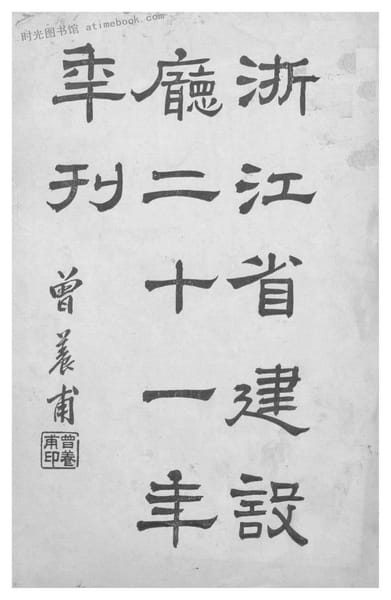 时光图书馆 atimebook.com
浙江省建設
廳二十一年
年刊
曾養甫
曾養
甫印